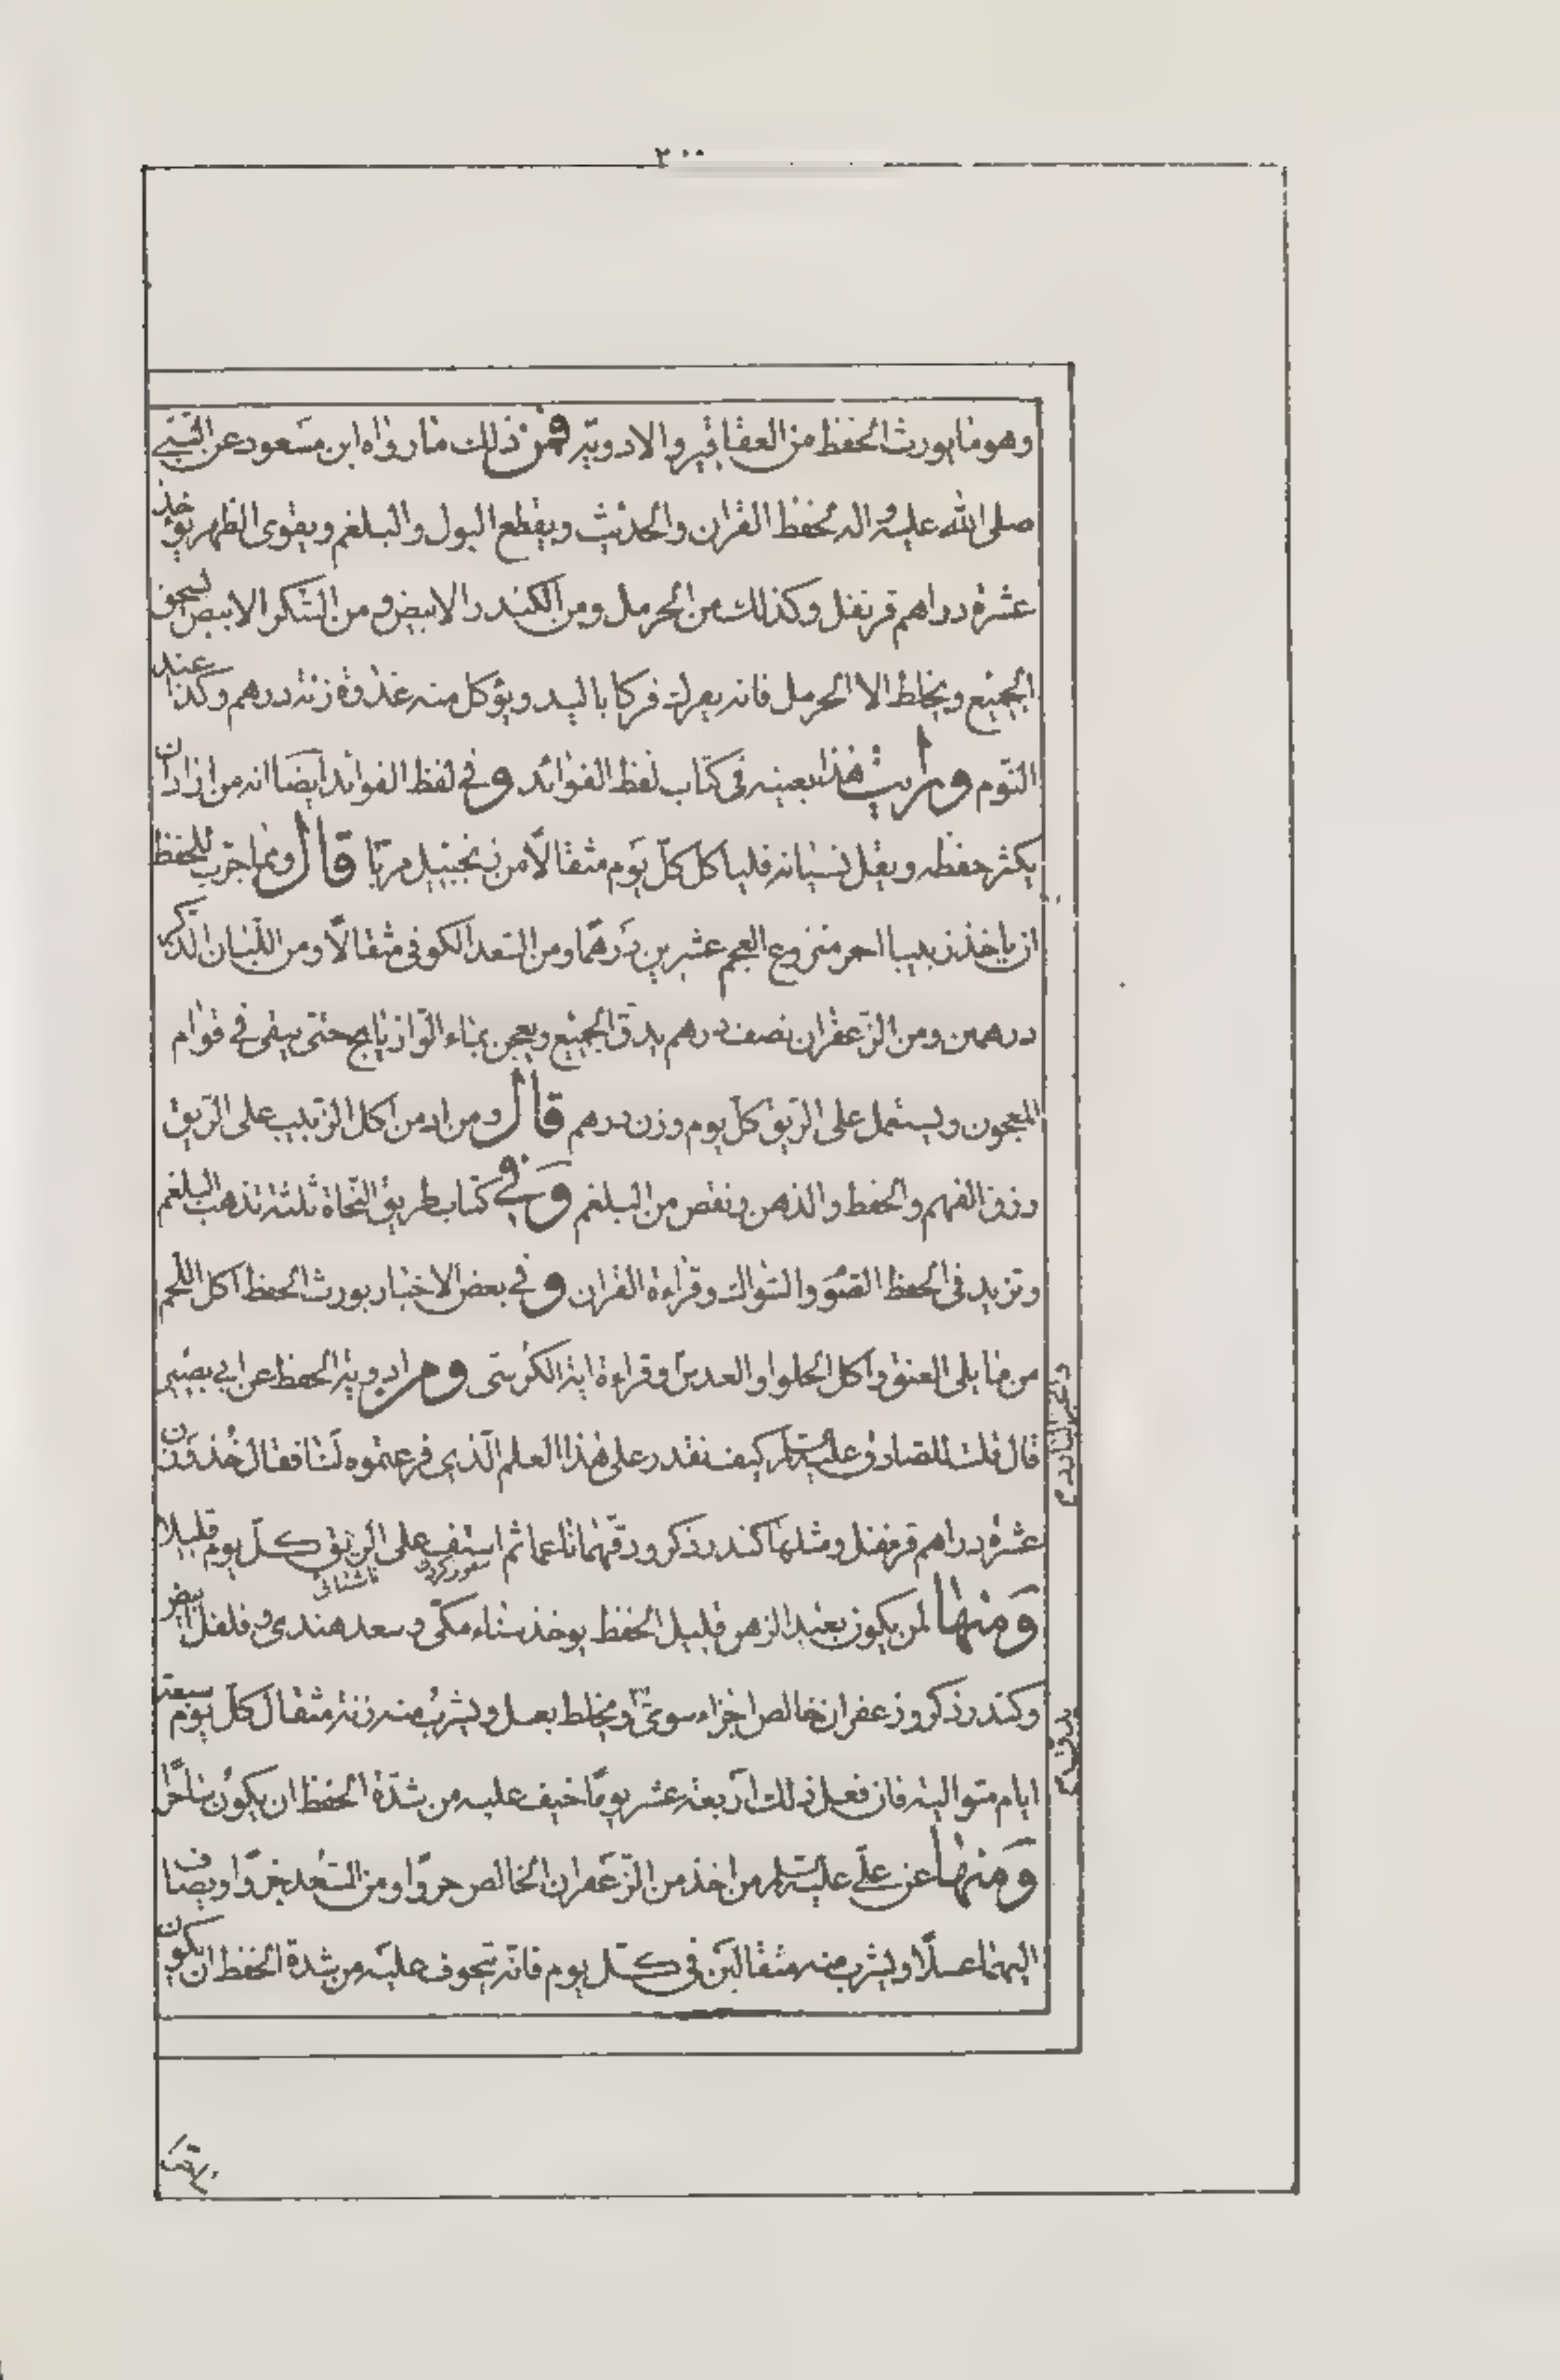 ٢٠٠
وهو ما يورث الحفظ من العقاقير والادوية فمن ذلك ما رواه ابن مسعود عن النبي
صلى الله عليه واله لحفظ القران والحديث ويقطع البول والبلغم ويقوى الظهر يؤخذ
عشرة دراهم قرنفل وكذلك من الحرمل ومن الكندر الابيض ومن السكر الابيض يسحق
الجميع ويخلط الا الحرمل فانه يفرك فركا باليد ويؤكل منه غدوة زنة درهم وكذا عند
النوم ورايت هذا بعينه فى كتاب لفظ الفوائد وفي لفظ الفوائد ايضا انه من اراد ان
يكثر حفظه ويقل نسيانه فلياكل كل يوم مثقالا من زنجبيل مربا قال ومما جرب للحفظ
ان ياخذ زبيبا احمر منزوع العجم عشرين درهما ومن السعد الكوفى مثقالا ومن اللبان الذكر
درهمين ومن الزعفران نصف درهم يدق الجميع ويعجن بماء الرازيانج حتى يبقى في قوام
المعجون ويستعمل على الريق كل يوم وزن درهم قال ومن ادمن اكل الزبيب على الريق
رزق الفهم والحفظ والذهن ونقص من البلغم وفي كتاب طريق النجاة ثلثة تذهب البلغم
وتزيد فى الحفظ الصوم والسواك وقراءة القران وفي بعض الاخبار يورث الحفظ اكل اللحم
من ما يلى العنق واكل الحلوا والعدس وقراءة اية الكرسى ومر ادوية الحفظ عن ابي بصير
قال قلت للصادق عليه السلام كيف نقدر على هذا العلم الذي فرعتموه لنا فقال خذ وزن
عشرة دراهم قرنفل ومثلها كندر ذكر ودقهما ناعما ثم استف على الريق كل يوم قليلا
ناشتائى
ومنها لمن يكون بعيد الذهن قليل الحفظ يوخذ سناء مكى وسعد هندى وفلفل ابيض
وكندر ذكر وزعفران خالص اجزاء سوى ويخلط بعسل ويشرب منه زنة مثقال كل يوم سبعة
ايام متوالية فان فعل ذلك اربعة عشر يوما خيف عليه من شدة الحفظ ان يكون ساحرا
ومنها عن علي عليه السلام من اخذ من الزعفران الخالص جزوا ومن السعد جزوا ويضاف
اليهما عسلا ويشرب منه مثقالين فى كل يوم فانه يتخوف عليه من شدة الحفظ ان يكون